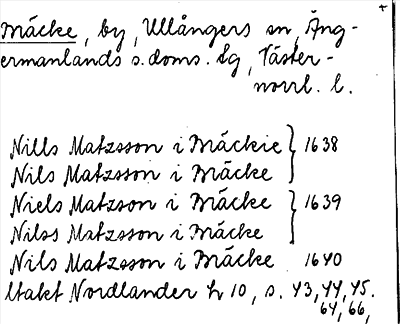 Mäcke, by, Ullångers sn, Äng-
ermanlands s.doms. lg, Väster-
norrl. l.
Nills Matzsson i Mäckie } 1638
Nils Matzson i Mäcke
Niels Matzson i Mäcke } 1639
Nilss Matzson i Mäcke
Nils Matzsson i Mäcke 1640
Utakt Nordlander h 10, s. 43, 44, 45.
64, 66,